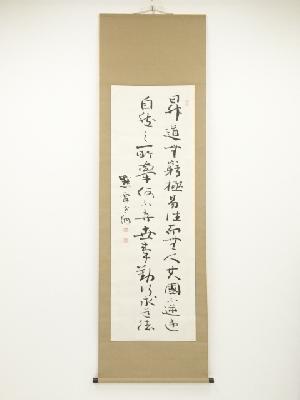 昇道無窮極易往而無人其國不逆違
自然之所牽何不弃世事勤行求道德